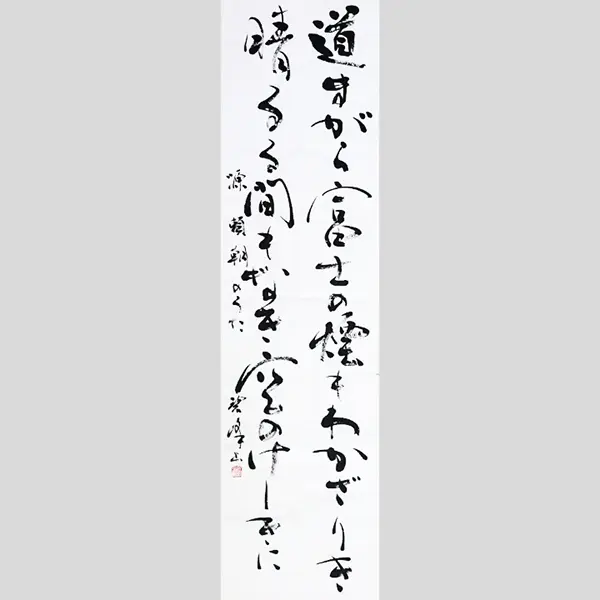 道すがら富士の煙もわかざりき
晴るる間もなき空のけしきに
源頼朝のうた